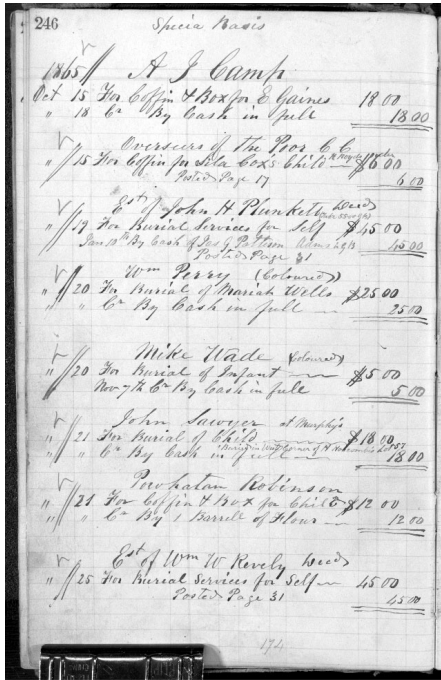 246
Specia Basis
1865 // A J Camp
Oct 15 For Coffin & Box for E. Gaines 18 00
" 18 Cr By Cash in full 18.00
Overseers of the Poor C C
" // 15 For Coffin for Cox's Child $6 00
Posted Page 17 6 00
Est of John H Plunkett Decd
" // 19 For Burial Services for Self $45 00
Jan 10th By Cash of Jas G Patteson Adms 45 00
Posted Page 31
Wm Perry (Coloured)
" // 20 For Burial of Mariah Wells $25 00
" " Cr By Cash in full 25 00
Mike Wade (Coloured)
" // 20 For Burial of Infant $5 00
Nov 7th Cr By Cash in full 5 00
John Sawyer at Murphy's
" // 21 For Burial of Child $18 00
" " Cr By Cash in full 18 00
Buried in Corner of Lot 57
Powhatan Robinson
" // 21 For Coffin & Box for Child $12 00
" " Cr By 1 Barrell of Flour 12 00
Est of Wm W Revely Decd
" // 25 For Burial Services for Self 45 00
Posted Page 31 45 00
174